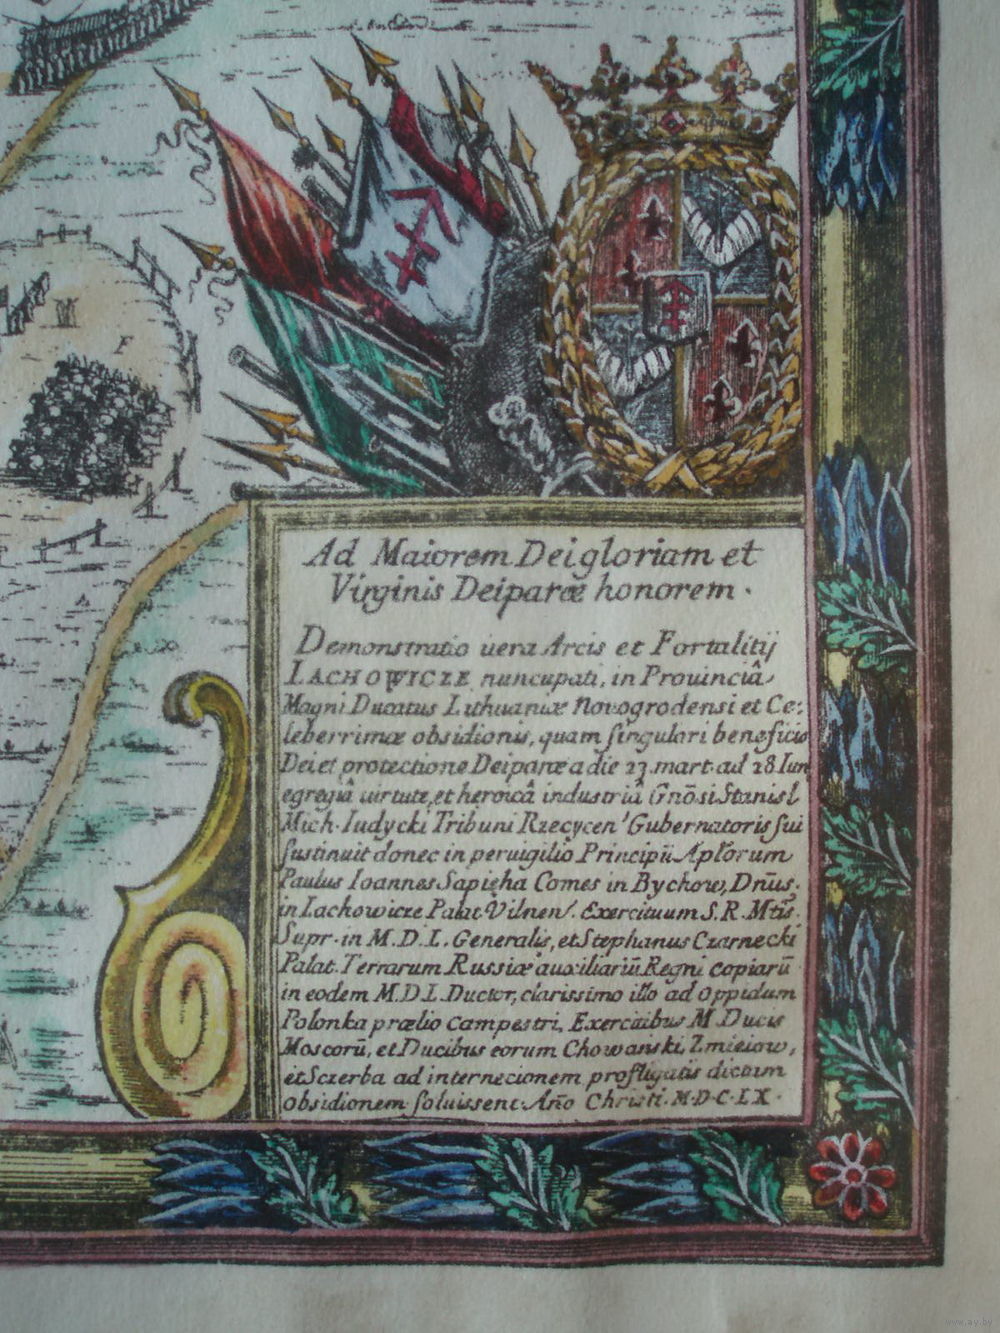 F
Ad Maiorem Dei gloriam et
Virginis Deiparæ honorem.
Demonstratio uera Arcis et Fortalitij
LACHOWICZE nuncupati, in Prouinciâ
Magni Ducatus Lithuaniæ Novogrodensi et Ce:
leberrimæ obsidionis, quam singulari beneficio
Dei et protectione Deiparæ a die 23. mart. ad 28 Iun
egregiâ uirtute, et heroicâ industriâ Gñosi Stanisl
Mich. Iudycki Tribuni Rzecycen' Gubernatoris sui
sustinuit donec in peruigilio Principū Apłorum
Paulus Ioannes Sapieha Comes in Bychow, Dnūs.
in Lachowicze Palat. Vilnen. Exercituum S. R. Mtis.
Supr. in M. D. L. Generalis, et Stephanus Czarnecki
Palat. Terrarum Russiæ auxiliariū Regni copiarū
in eodem M.D.L. Ductor, clarissimo illo ad oppidum
Polonka prælio campestri, Exercitibus M. Ducis
Moscorū, et Ducibus eorum Chowanski, Zmieiow,
et Sczerba ad internecionem profligatis dictam
obsidionem soluissent. Año Christi. M.D.C.LX.
www.ay.by